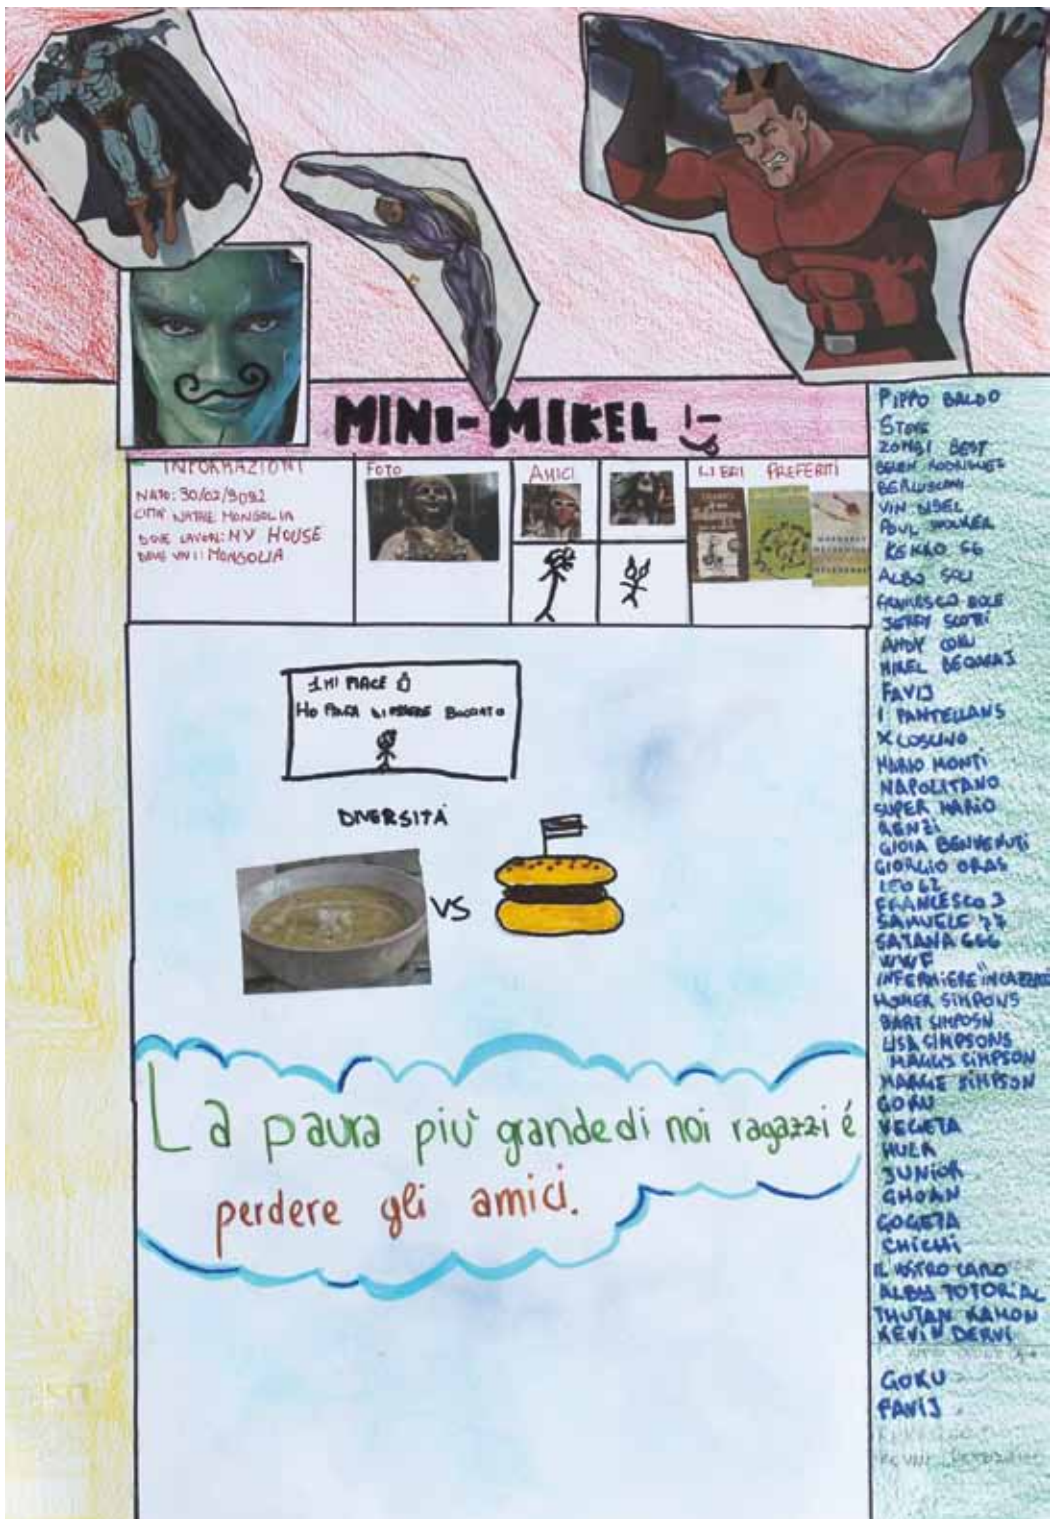 MINI-MIKEL :-)
INFORMAZIONI
NATO: 30/02/9092
CITTÀ NATALE MONGOLIA
DOVE LAVORI: MY HOUSE
DOVE VIVI: MONGOLIA
FOTO
AMICI
LIBRI PREFERITI
1 MI PIACE
HO PAURA DI ESSERE BOCCIATO
DIVERSITÀ
VS
La paura più grande di noi ragazzi é
perdere gli amici.
PIPPO BALDO
STEVE
ZOMBI BEST
BELEN RODRIGUEZ
BERLUSCONI
VIN DISEL
POUL WOLKER
KEKKO 56
ALBO SOLI
FRANCESCO BOLE
JERRY SCOTTI
ANDY
MIKEL BEQARAJ
FAVIJ
I PANTELLANS
MARIO MONTI
NAPOLITANO
SUPER MARIO
RENZI
GIOIA BENVENUTI
GIORGIO ORAS
LEO 62
FRANCESCO 3
SAMUELE 77
SATANA 666
WWF
INFERMIERE
HOMER SIMPONS
BART SIMPOSN
LISA SIMPSONS
SIMPSON
MARGE SIMPSON
GOKU
VEGETA
HULK
JUNIOR
GHOAN
GOGETA
CHICHI
IL VOSTRO CARO
TOTORIAL
KEVIN DERVI
GOKU
FAVIJ